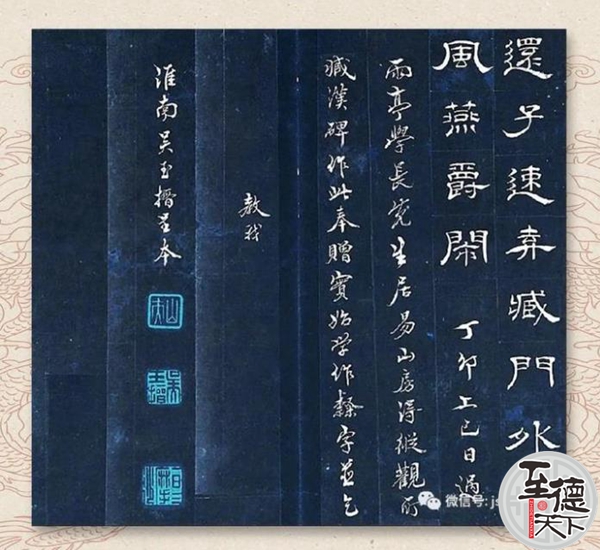 還子速弆臧門外
風燕爵閑 丁卯上巳日過
雨亭學長居易山房得縱觀所
臧漢碑作此奉贈實始學作隸字並乞
教我
淮南吳玉搢呈本
山夫
微信号: js
至德天下